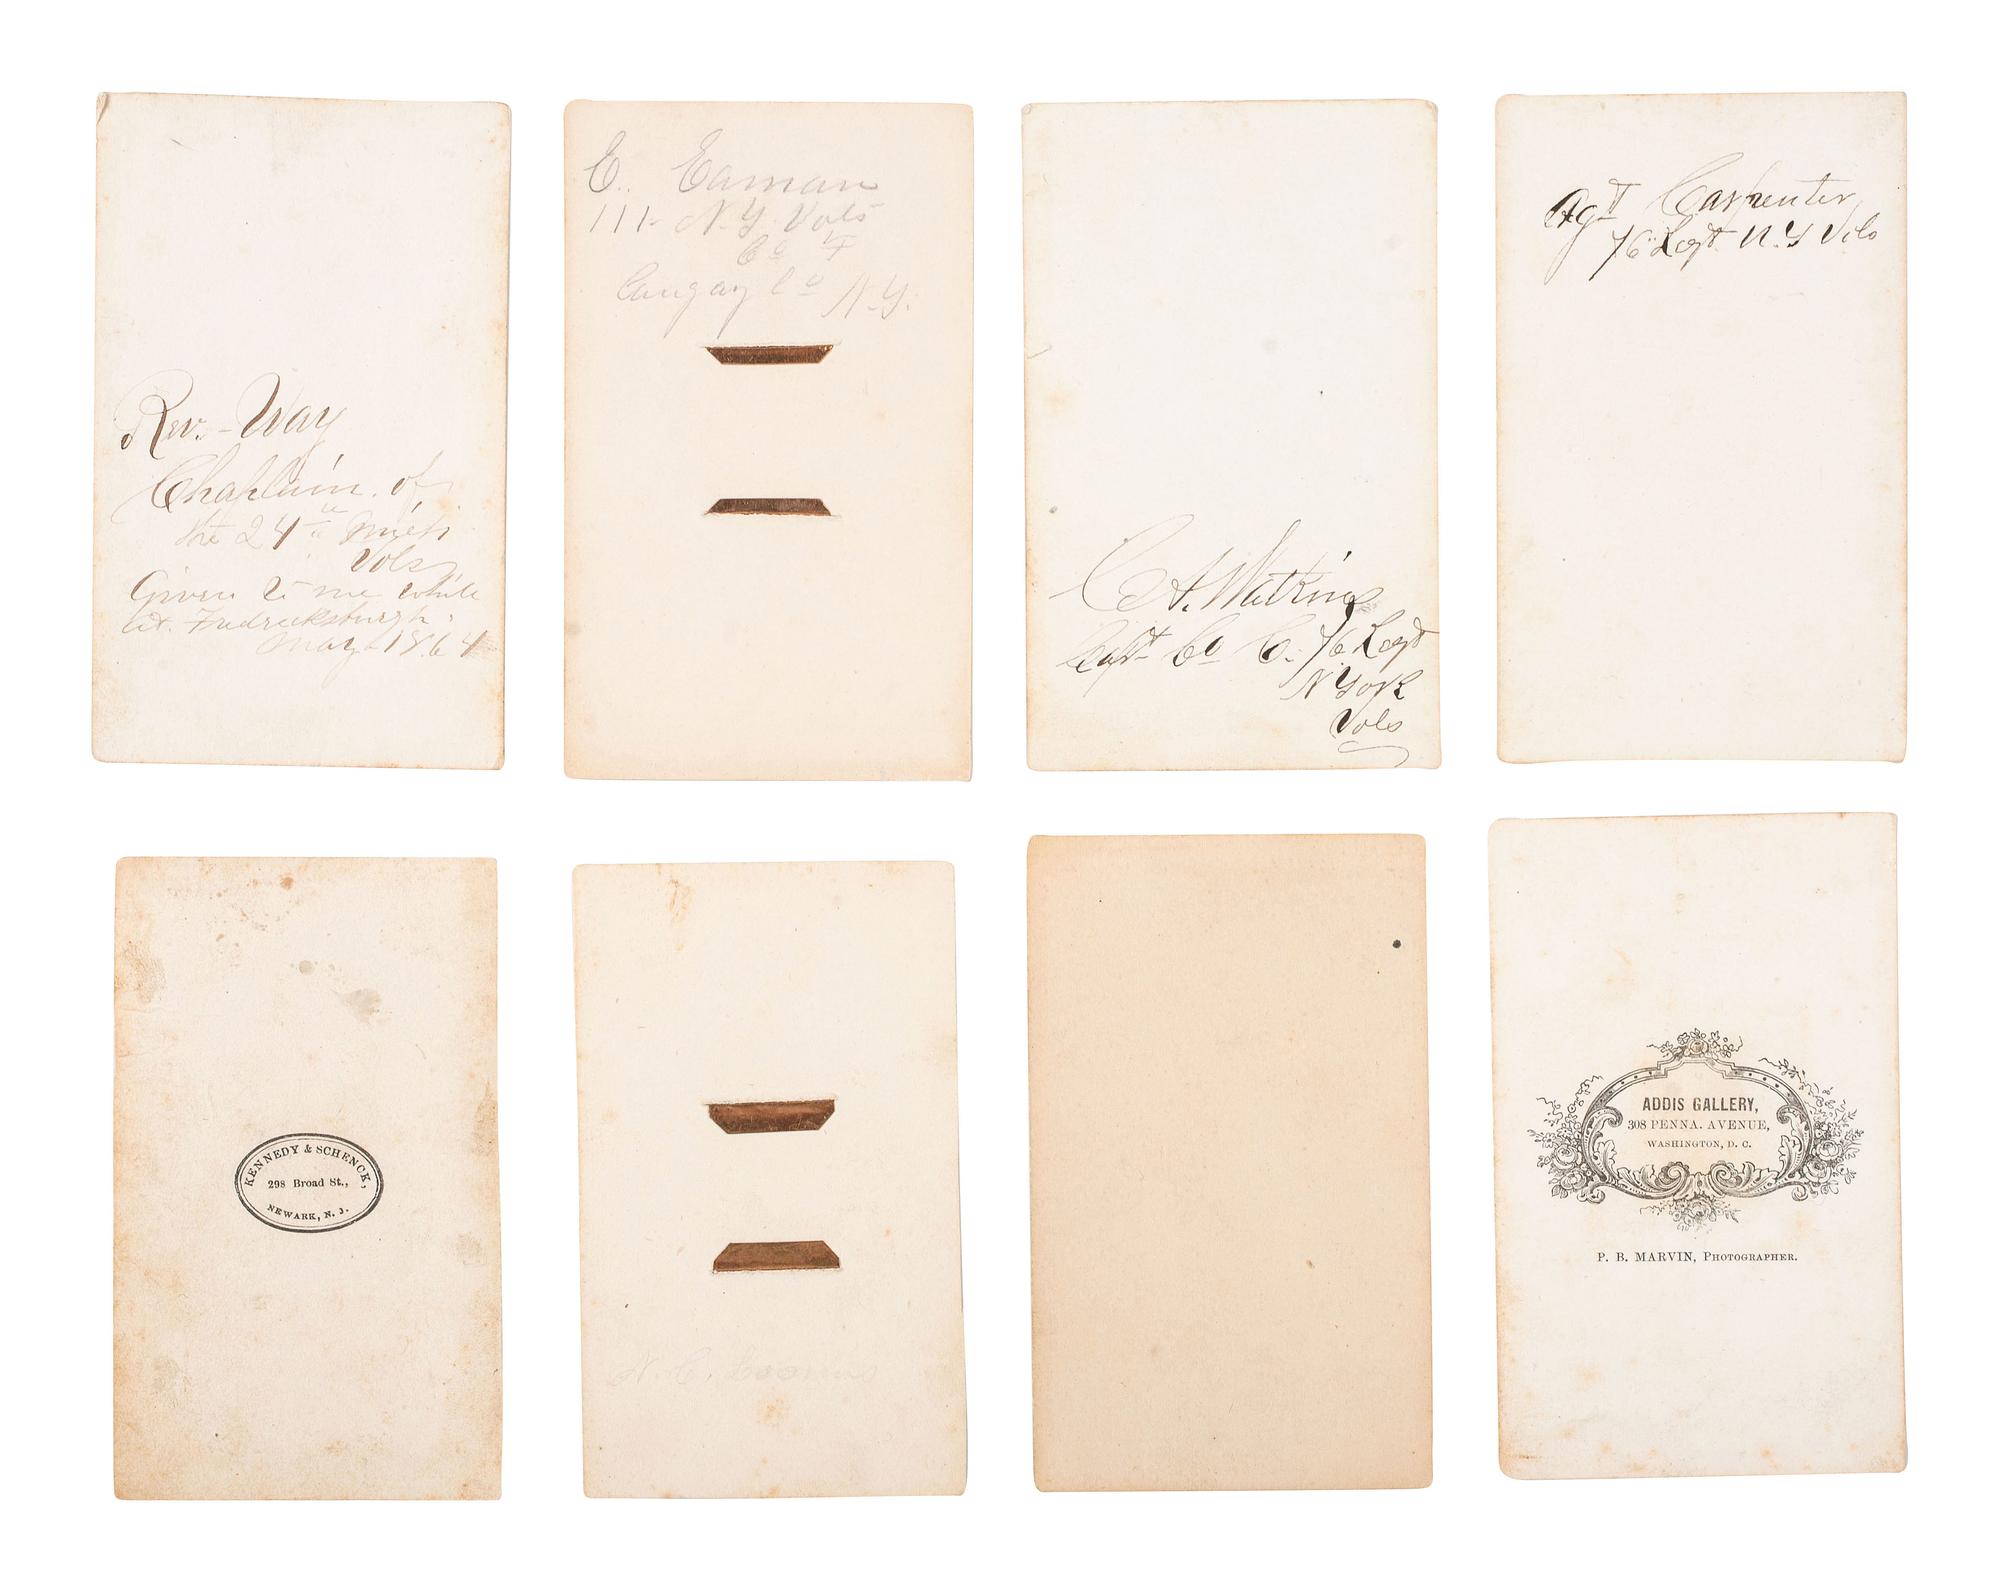 Rev. - Way
Chaplain. of
the 24th Mich
Vols
Given to me while
at. Fredricksburgh.
May 1864
E. Eaman
111- N.Y. Vols
Co F
Co N.Y.
C A. Watkins
Capt Co C. 76 Regt
N York
Vols
Agt Carpenter
76 Regt N.Y Vols
KENNEDY & SCHENCK,
298 Broad St.,
NEWARK, N. J.
N. C. Loomis
ADDIS GALLERY,
308 PENNA. AVENUE,
WASHINGTON, D. C.
P. B. MARVIN, PHOTOGRAPHER.